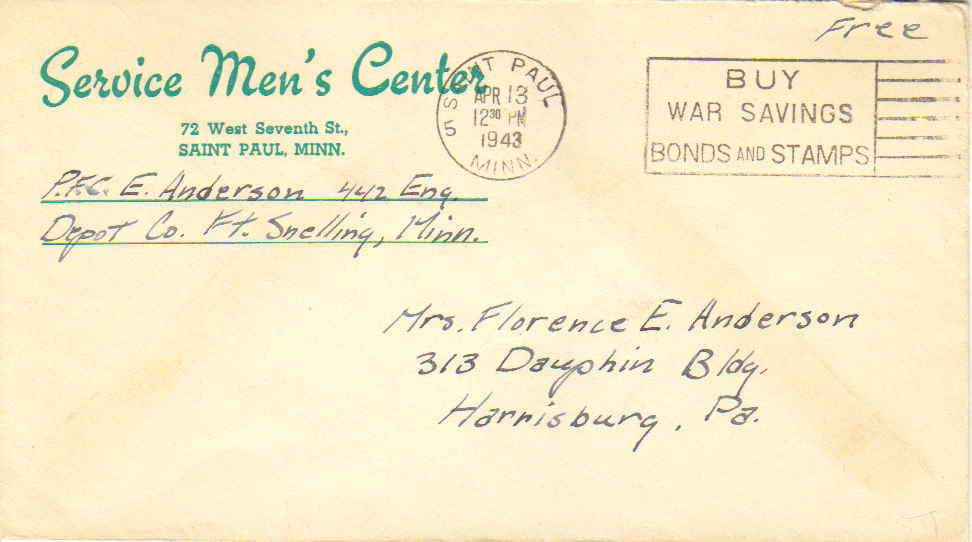 Free
Service Men's Center
72 West Seventh St.,
SAINT PAUL, MINN.
SAINT PAUL
APR 13
12 30 PM
1943
5
MINN.
BUY
WAR SAVINGS
BONDS AND STAMPS
P.F.C. E. Anderson 442 Eng.
Depot Co. Ft. Snelling, Minn.
Mrs. Florence E. Anderson
313 Dauphin Bldg.
Harrisburg, Pa.